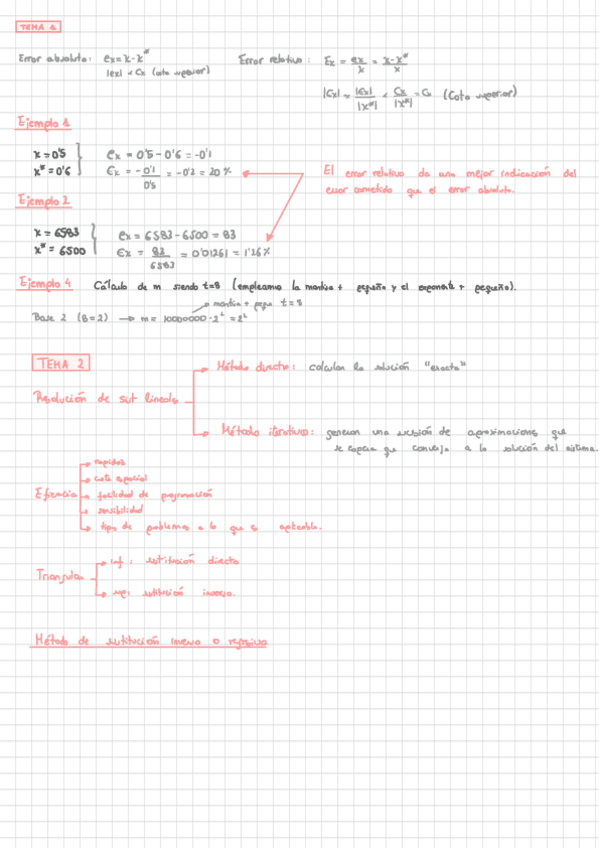 TEMA 1
Error absoluto: ex = x - x* Error relativo: Ex = ex/x = x-x*/x
|ex| < Cx (cota superior)
|Ex| = |ex|/|x*| < Cx/|x*| = (Cota superior)
Ejemplo 1
x = 0'5 ex = 0'5 - 0'6 = -0'1
x* = 0'6 Ex = -0'1/0'5 = -0'2 = 20%
El error relativo da una mejor indicación del
error cometido que el error absoluto.
Ejemplo 2
x = 6583 ex = 6583 - 6500 = 83
x* = 6500 Ex = 83/6583 = 0'01261 = 1'26%
Ejemplo 4 Cálculo de m siendo t=8 (empleamos la mantisa + pequeña y el exponente + pequeño).
mantisa + pequ t=8
Base 2 (B=2) → m = 10000000 · 2
TEMA 2
Método directo: calculan la solución "exacta"
Resolución de sist lineales
Método iterativo: generan una sucesión de aproximaciones que
se espera que converja a la solución del sistema.
rapidez
coste espacial
Eficiencia facilidad de programación
sensibilidad
tipos de problemas a lo que es aplicable.
inf: sustitución directa
Triangular
sup: sustitución inversa.
Método de sustitución inversa o regresiva